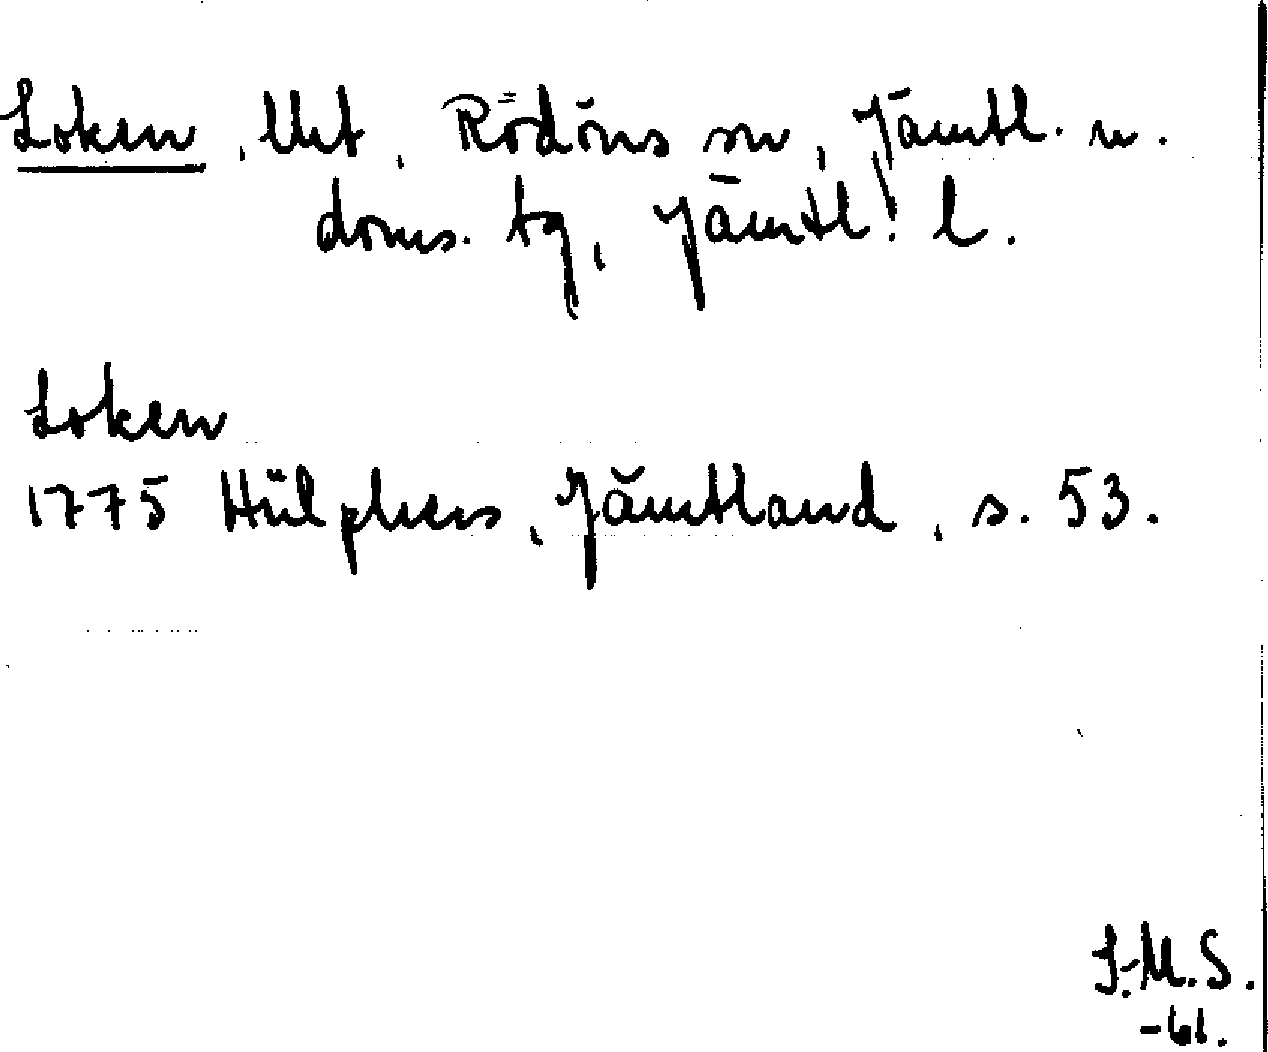 Loken, Utt, Rödöns sn, Jämtl. n.
doms. tg, Jämtl. l.
Loken
1775 Hülphers, Jämtland, s. 53.
I.M.S.
-61.